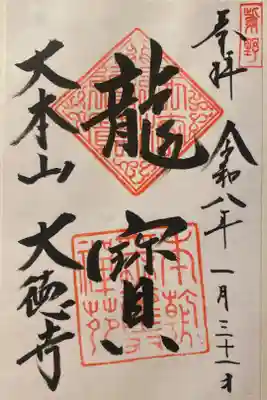 紫野
奉拝
令和八年
一月三十一日
龍寳
大本山
大徳寺